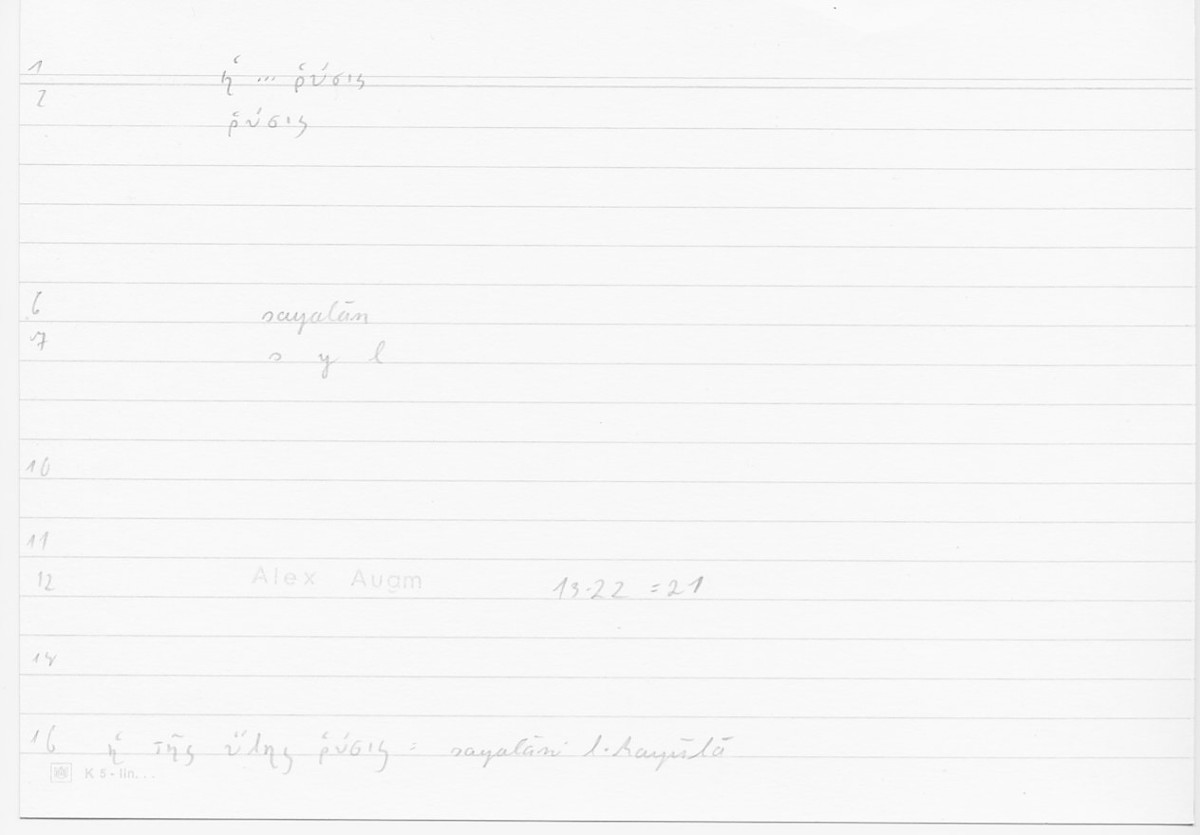 1 ἡ ... ῥύσις
2 ῥύσις
6 sayalān
7 s y l
10
11
12 Alex Augm 13-22 =21
14
16 ἡ τῆς ὕλης ῥύσις = sayalānu l-hayūlā
K 5 - lin. . .